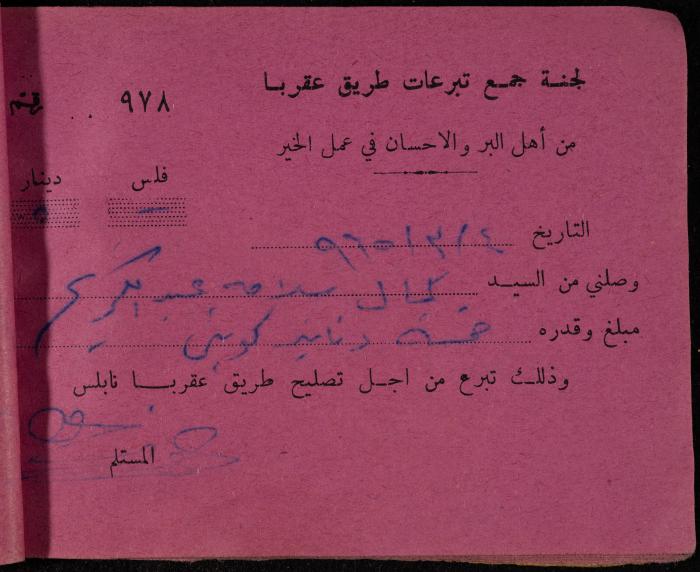 لجنة جمع تبرعات طريق عقربا
رقم .. ٩٧٨
من أهل البر والاحسان في عمل الخير
فلس دينار
— ٥
التاريخ ٤/٣/٩٦٥
وصلني من السيد كمال سلامة عبد الكريم
مبلغ وقدره خمسة دنانير كويتي
وذلك تبرع من اجل تصليح طريق عقربا نابلس
المستلم